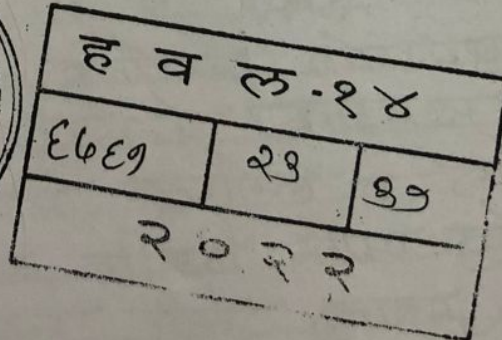 ह व ल-१४
६५६१ २३ ३१
२०२२